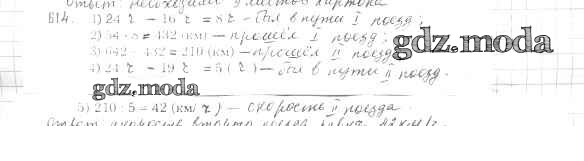 Ответ: необходимо 9 листов картона
614. 1) 24 ч – 16 ч = 8 ч – был в пути I поезд;
2) 54 · 8 = 432 (км) – прошёл I поезд;
3) 642 – 432 = 210 (км) – прошёл II поезд;
4) 24 ч – 19 ч = 5 (ч) – был в пути II поезд.
gdz.moda
gdz.moda
5) 210 : 5 = 42 (км/ч) – скорость II поезда.
Ответ: скорость второго поезда 42 км/ч.